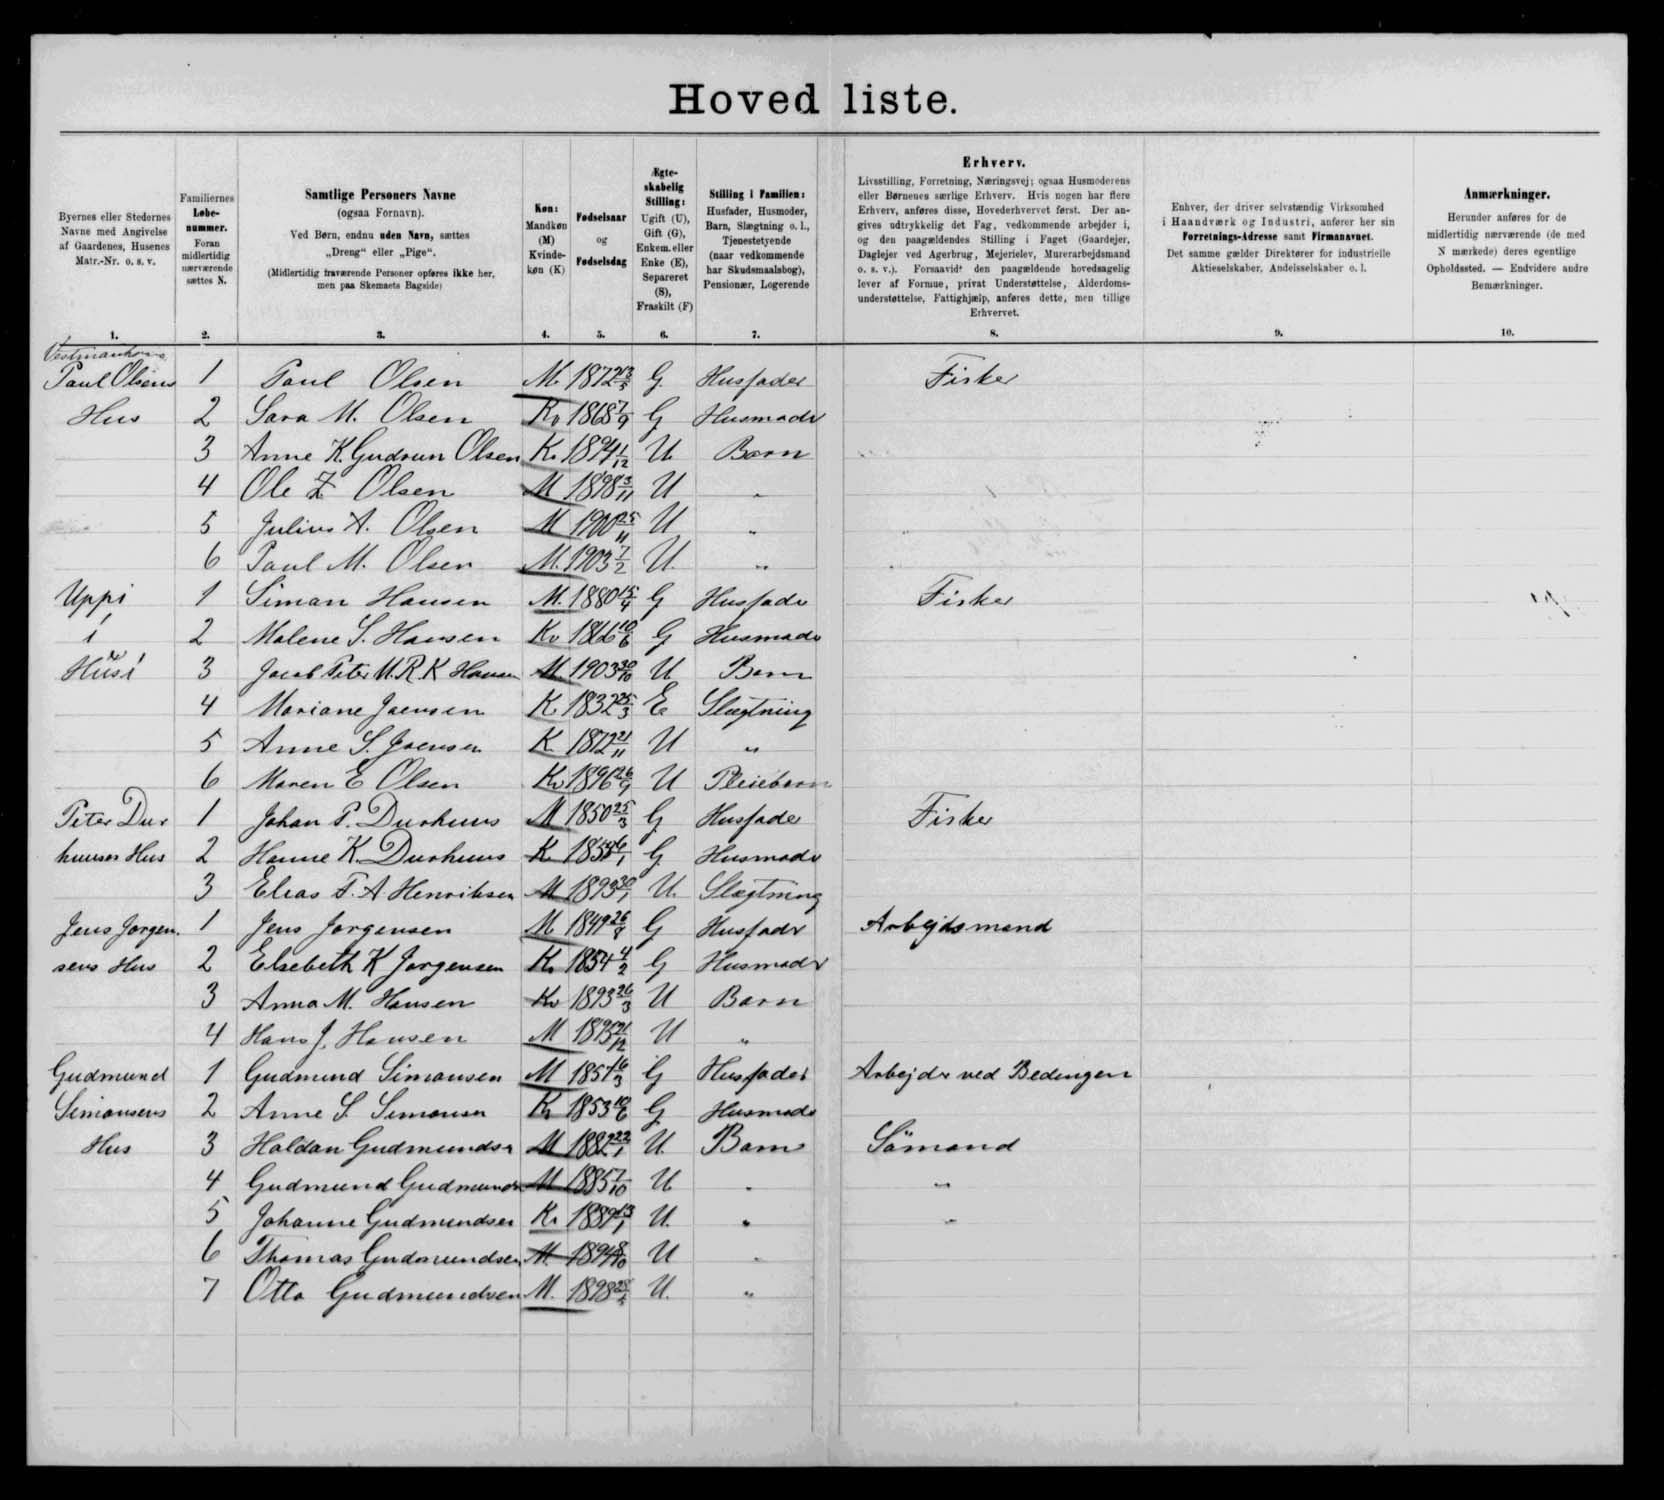 Hoved liste.
Byernes eller Stedernes
Navne med Angivelse
af Gaardenes, Husenes
Matr.-Nr. o. s. v.
Familiernes
Løbe-
nummer.
Foran
midlertidig
nærværende
sættes N.
Samtlige Personers Navne
(ogsaa Fornavn).
Ved Børn, endnu uden Navn, sættes
„Dreng“ eller „Pige“.
(Midlertidig fraværende Personer opføres ikke her,
men paa Skemaets Bagside)
Køn:
Mandkøn
(M)
Kvinde-
køn (K)
Fødselsaar
og
Fødselsdag
Ægte-
skabelig
Stilling:
Ugift (U),
Gift (G),
Enkem. eller
Enke (E),
Separeret
(S),
Fraskilt (F)
Stilling i Familien:
Husfader, Husmoder,
Barn, Slægtning o. l.,
Tjenestetyende
(naar vedkommende
har Skudsmaalsbog),
Pensionær, Logerende
Erhverv.
Livsstilling, Forretning, Næringsvej; ogsaa Husmoderens
eller Børnenes særlige Erhverv. Hvis nogen har flere
Erhverv, anføres disse, Hovederhvervet først. Der an-
gives udtrykkelig det Fag, vedkommende arbejder i,
og den paagældendes Stilling i Faget (Gaardejer,
Daglejer ved Agerbrug, Mejerielev, Murerarbejdsmand
o. s. v.). Forsaavidt den paagældende hovedsagelig
lever af Formue, privat Understøttelse, Alderdoms-
understøttelse, Fattighjælp, anføres dette, men tillige
Erhvervet.
Enhver, der driver selvstændig Virksomhed
i Haandværk og Industri, anfører her sin
Forretnings-Adresse samt Firmanavnet.
Det samme gælder Direktører for industrielle
Aktieselskaber, Andelsselskaber o. l.
Anmærkninger.
Herunder anføres for de
midlertidig nærværende (de med
N mærkede) deres egentlige
Opholdssted. — Endvidere andre
Bemærkninger.
1. 2. 3. 4. 5. 6. 7. 8. 9. 10.
Vestmanhavn
Paul Olsens 1 Paul Olsen M. 1872 13/5 G Husfader Fisker
Hus 2 Sara M. Olsen Kv 1868 7/9 G Husmoder
3 Anne K. Gudrun Olsen K. 1894 1/12 U. Barn
4 Ole Z Olsen M 1898 3/11 U "
5 Julius A. Olsen M 1900 25/11 U "
6 Paul M. Olsen M. 1903 7/2 U. "
Uppi 1 Simon Hansen M. 1880 15/4 G Husfader Fisker
í 2 Malene S. Hansen Kv 1866 10/6 G Husmoder
Húsi 3 Jacob Peter M. R. K Hansen M. 1903 30/10 U Barn
4 Mariane Joensen K. 1832 25/3 E Slægtning
5 Anne S. Joensen K. 1872 21/11 U "
6 Maren E Olsen Kv 1896 26/9 U Pleiebarn
Peter Dur 1 Johan P. Durhuus M 1850 25/3 G Husfader Fisker
huuses Hus 2 Hanne K. Durhuus K. 185 6/1 G Husmoder
3 Elias P. A Henriksen M 1893 30/1 U. Slægtning
Jens Jorgen. 1 Jens Jorgensen M 1849 26/8 G Husfader Arbejdsmand
sens Hus 2 Elsebeth K Jorgensen K. 1854 4/2 G Husmoder
3 Anna M. Hansen Kv 1893 26/3 U Barn
4 Hans J. Hansen M 1895 21/12 U "
Gudmund 1 Gudmund Simonsen M 1851 16/3 G Husfader Arbejder ved Bedingen
Simonsens 2 Anne S Simonsen K. 1853 10/6 G Husmoder
Hus 3 Haldan Gudmundsen M 1882 22/1 U. Barn Sömand
4 Gudmund Gudmundsen M 1885 7/10 U " "
5 Johanne Gudmundsen K. 1889 13/1 U. " "
6 Thomas Gudmundsen M. 1894 8/10 U "
7 Otto Gudmundsen M. 1898 U. "